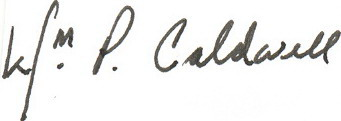 Wm. P. Caldwell